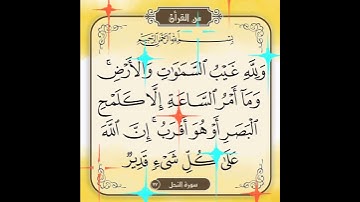 من القرآن
بِسْمِ اللَّهِ الرَّحْمَنِ الرَّحِيمِ
وَلِلَّهِ غَيْبُ السَّمَوَتِ وَالْأَرْضِ ۚ
وَمَا أَمْرُ السَّاعَةِ إِلَّا كَلَمْحِ
الْبَصَرِ أَوْ هُوَ أَقْرَبُ ۚ إِنَّ اللَّهَ
عَلَى كُلِّ شَيْءٍ قَدِيرٌ
سورة النحل ٧٧